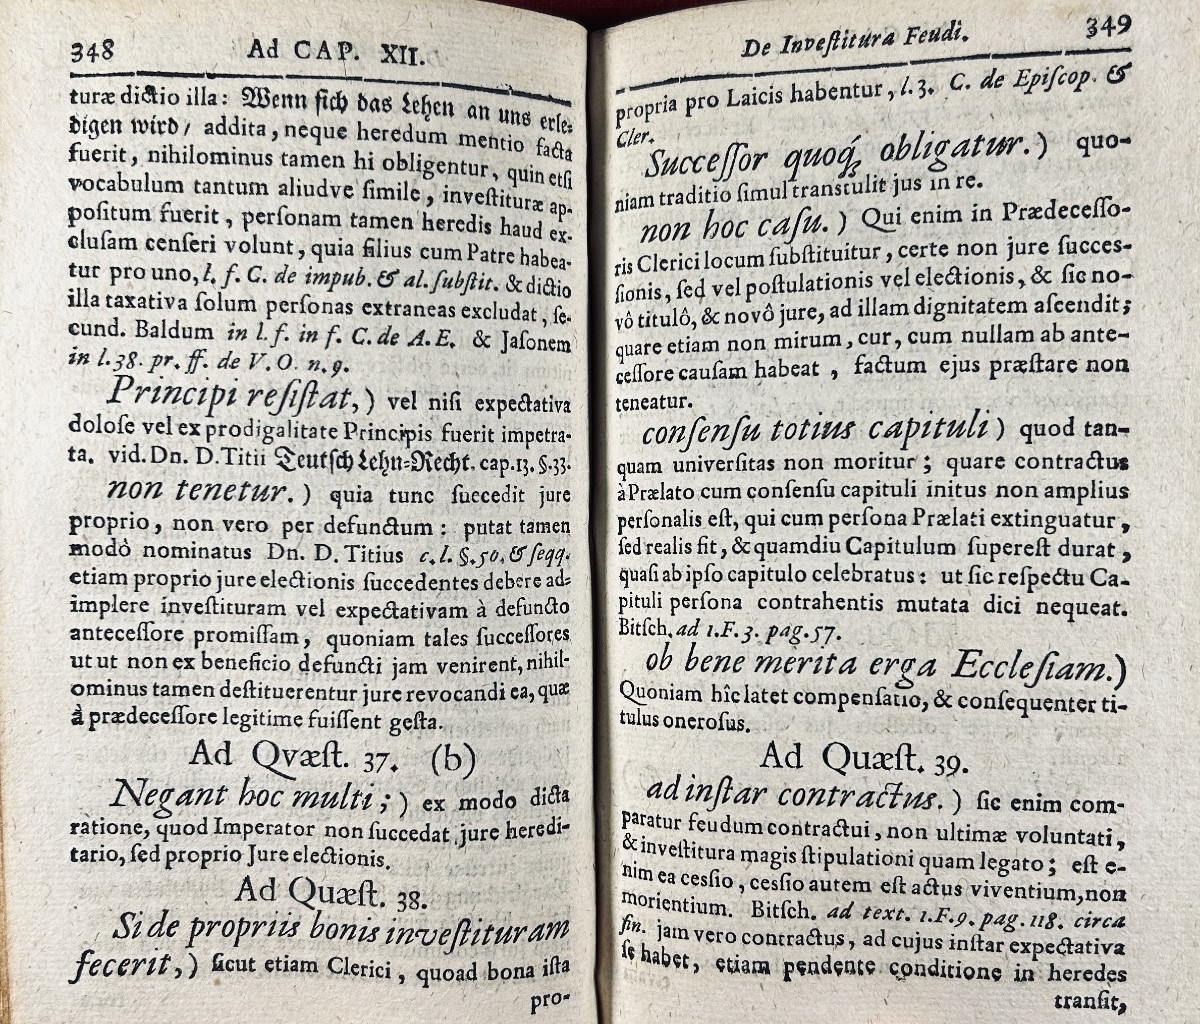 348 Ad CAP. XII.
turæ dictio illa: Wenn ſich das Lehen an uns erle-
digen wird/ addita, neque heredum mentio facta
fuerit, nihilominus tamen hi obligentur, quin etſi
vocabulum tantum aliudve ſimile, inveſtituræ ap-
poſitum fuerit, perſonam tamen heredis haud ex-
cluſam cenſeri volunt, quia filius cum Patre habea-
tur pro uno, l. f. C. de impub. & al. ſubſtit. & dictio
illa taxativa ſolum perſonas extraneas excludat, ſe-
cund. Baldum in l. f. in f. C. de A. E. & Jaſonem
in l. 38. pr. ff. de V. O. n. 9.
Principi reſiſtat,) vel niſi expectativa
doloſe vel ex prodigalitate Principis fuerit impetra-
ta. vid. Dn. D. Titii Teutſch Lehn-Recht. cap. 13. §. 33.
non tenetur.) quia tunc ſuccedit jure
proprio, non vero per defunctum: putat tamen
modò nominatus Dn. D. Titius c. l. §. 50. & ſeqq.
etiam proprio jure electionis ſuccedentes debere ad-
implere inveſtituram vel expectativam à defuncto
anteceſſore promiſſam, quoniam tales ſucceſſores
ut ut non ex beneficio defuncti jam venirent, nihil-
ominus tamen deſtituerentur jure revocandi ea, quæ
à prædeceſſore legitime fuiſſent geſta.
Ad Qvæſt. 37. (b)
Negant hoc multi;) ex modo dicta
ratione, quod Imperator non ſuccedat jure heredi-
tario, ſed proprio Jure electionis.
Ad Quæſt. 38.
Si de propriis bonis inveſtituram
fecerit,) ſicut etiam Clerici, quoad bona iſta
pro-
De Inveſtitura Feudi. 349
propria pro Laicis habentur, l. 3. C. de Epiſcop. &
Cler.
Succeſſor quoq́; obligatur.) quo-
niam traditio ſimul transtulit jus in re.
non hoc caſu.) Qui enim in Prædeceſſo-
ris Clerici locum ſubſtituitur, certe non jure ſucces-
ſionis, ſed vel poſtulationis vel electionis, & ſic no-
vô titulô, & novô jure, ad illam dignitatem aſcendit;
quare etiam non mirum, cur, cum nullam ab ante-
ceſſore cauſam habeat, factum ejus præſtare non
teneatur.
conſenſu totius capituli) quod tan-
quam univerſitas non moritur; quare contractus
à Prælato cum conſenſu capituli initus non amplius
perſonalis eſt, qui cum perſona Prælati extinguatur,
ſed realis fit, & quamdiu Capitulum ſupereſt durat,
quaſi ab ipſo capitulo celebratus: ut ſic reſpectu Ca-
pituli perſona contrahentis mutata dici nequeat.
Bitſch. ad 1. F. 3. pag. 57.
ob bene merita erga Eccleſiam.)
Quoniam hîc latet compenſatio, & conſequenter ti-
tulus oneroſus.
Ad Quæſt. 39.
ad inſtar contractus.) ſic enim com-
paratur feudum contractui, non ultimæ voluntati,
& inveſtitura magis ſtipulationi quam legato; eſt e-
nim ea ceſſio, ceſſio autem eſt actus viventium, non
morientium. Bitſch. ad text. 1. F. 9. pag. 118. circa
fin. jam vero contractus, ad cujus inſtar expectativa
ſe habet, etiam pendente conditione in heredes
tranſit,